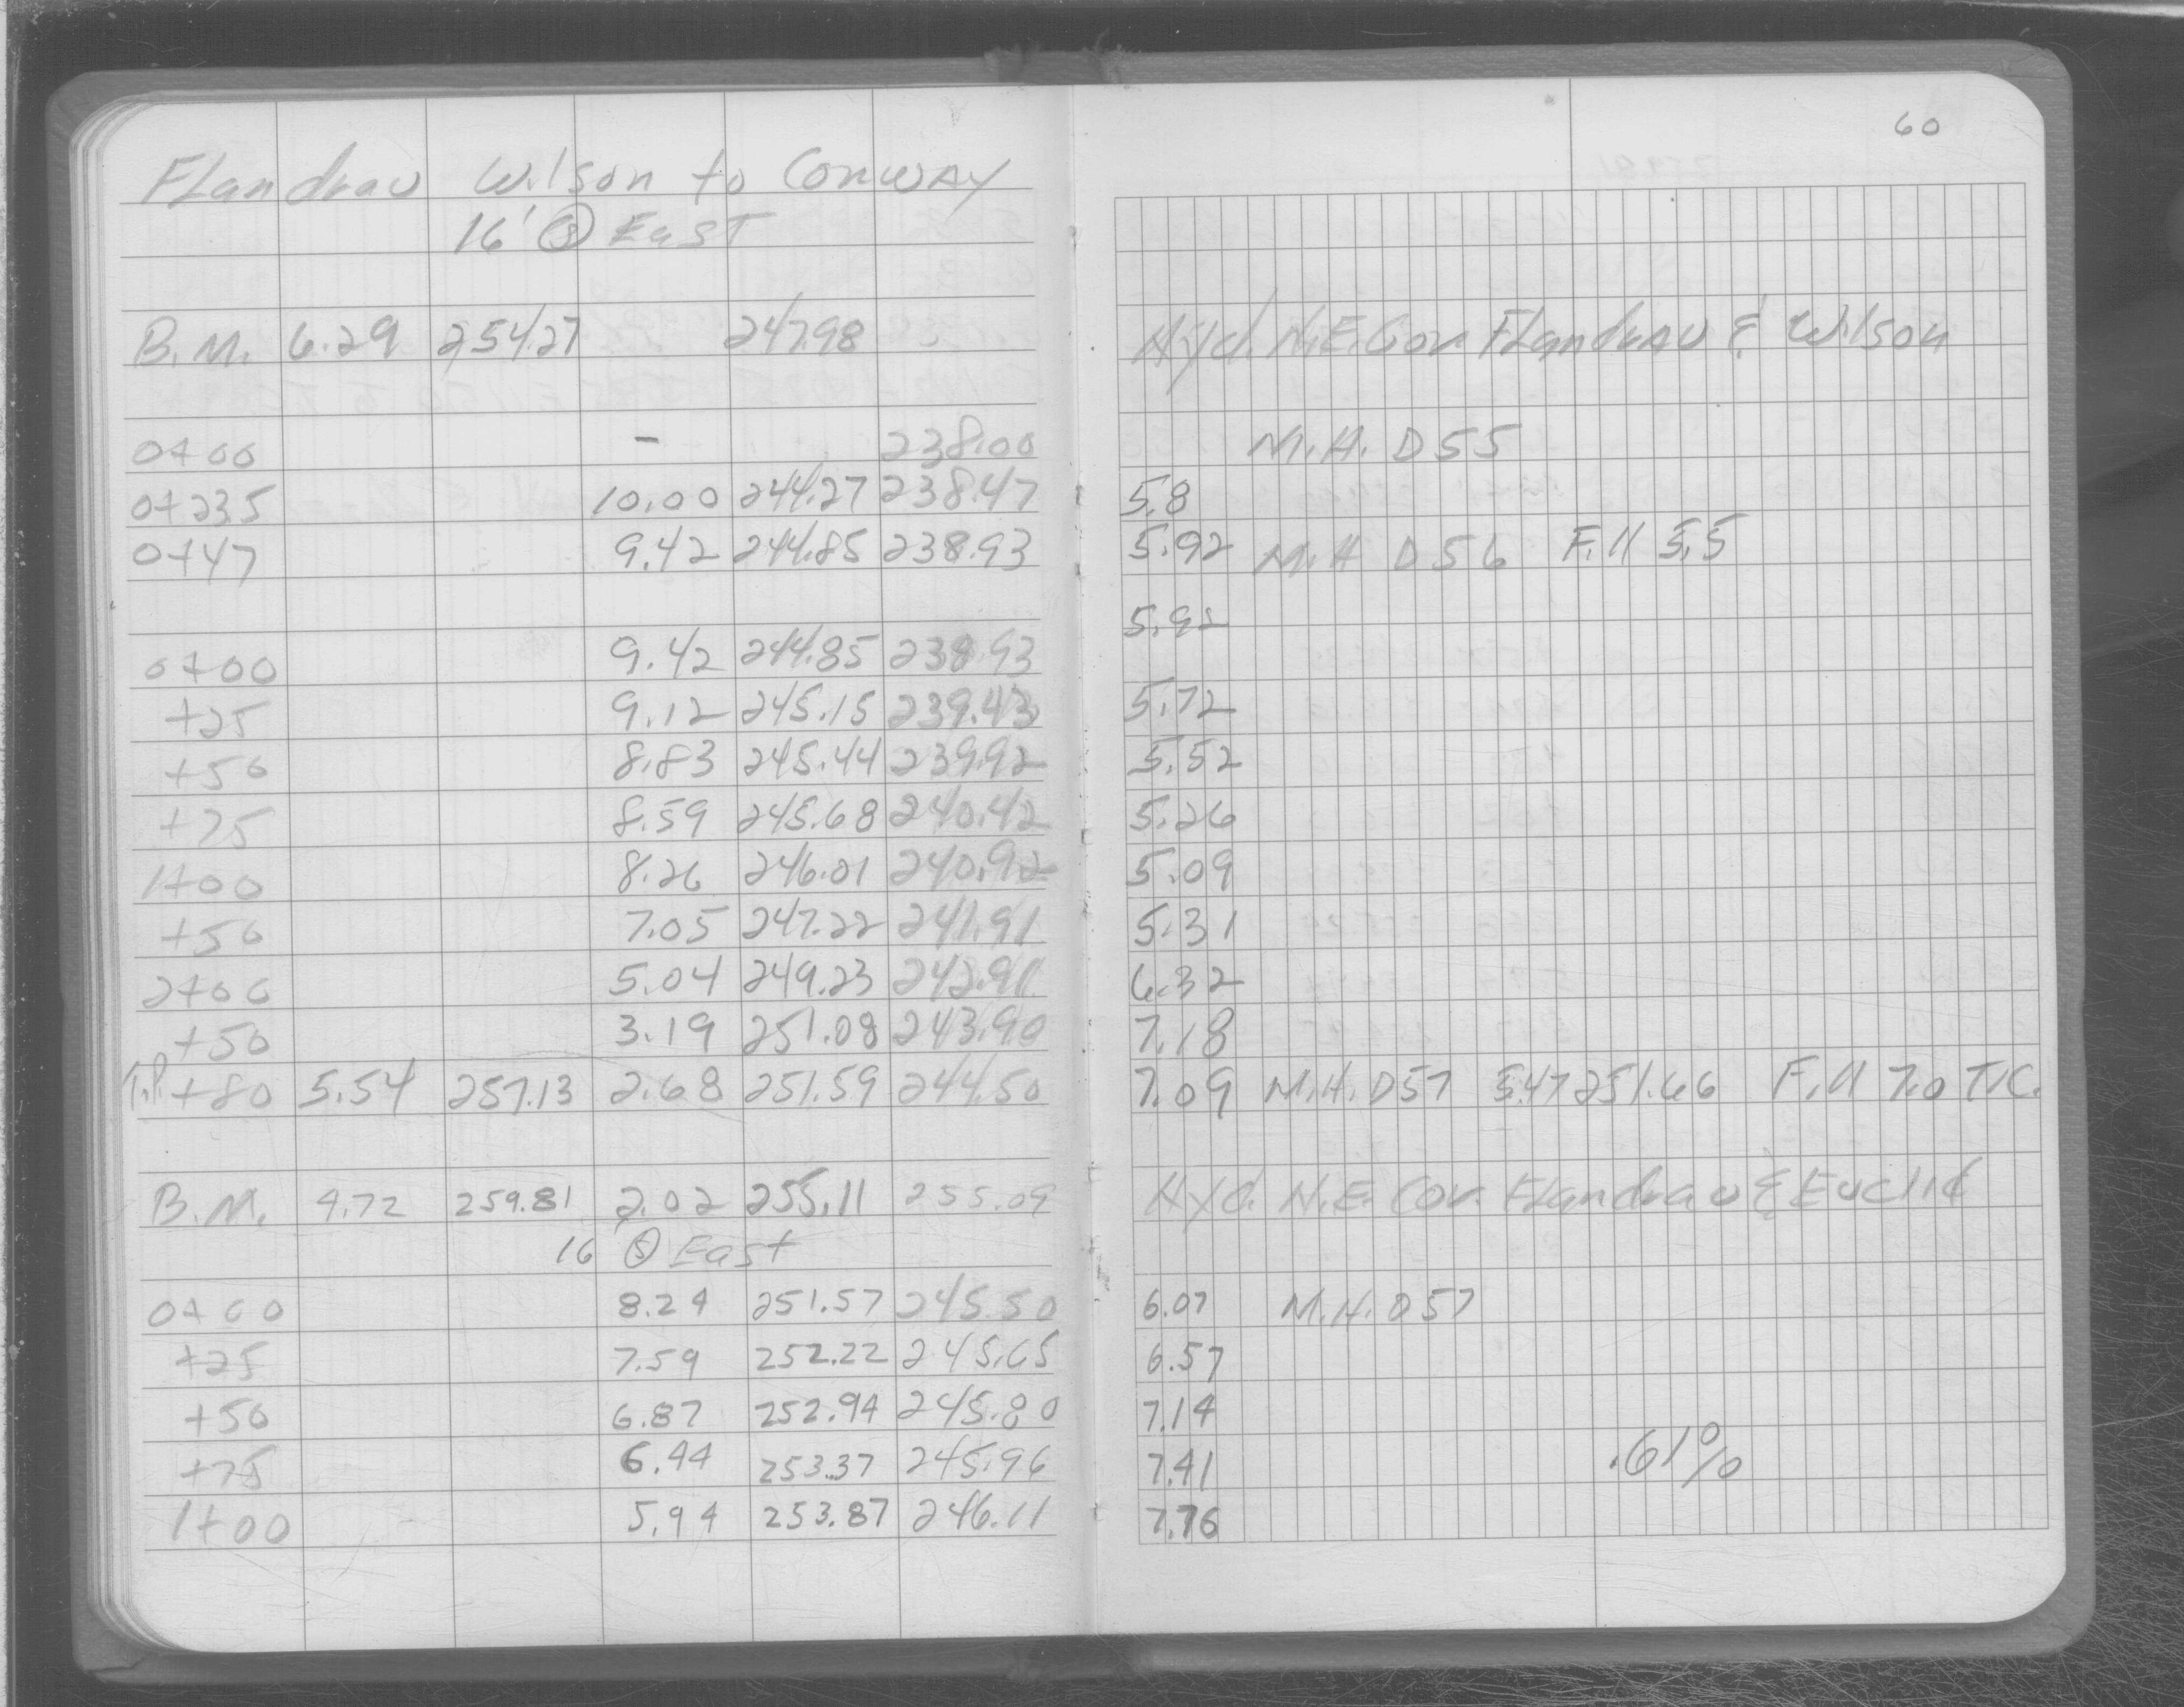 60
Flandrau Wilson to Conway
16' Ⓢ East
B.M. 6.29 254.27 247.98 Hyd. N.E. Cor. Flandrau & Wilson
0+00 - 238.00 M.H. D55
0+23.5 10.00 244.27 238.47 5.8
0+47 9.42 244.85 238.93 5.92 M.H D56 Fill 5.5
0+00 9.42 244.85 238.93 5.92
+25 9.12 245.15 239.43 5.72
+50 8.83 245.44 239.92 5.52
+75 8.59 245.68 240.42 5.26
1+00 8.26 246.01 240.92 5.09
+50 7.05 247.22 241.91 5.31
2+00 5.04 249.23 242.91 6.32
+50 3.19 251.08 243.90 7.18
T.P. +80 5.54 257.13 2.68 251.59 244.50 7.09 M.H. D57 5.47 251.66 Fill 7.0 T/C.
B.M. 4.72 259.81 2.02 255.11 255.09 Hyd. N.E. Cor. Flandrau & Euclid
16 Ⓢ East
0+00 8.24 251.57 245.50 6.07 M.H. D57
+25 7.59 252.22 245.65 6.57
+50 6.87 252.94 245.80 7.14
+75 6.44 253.37 245.96 7.41 .61%
1+00 5.94 253.87 246.11 7.76